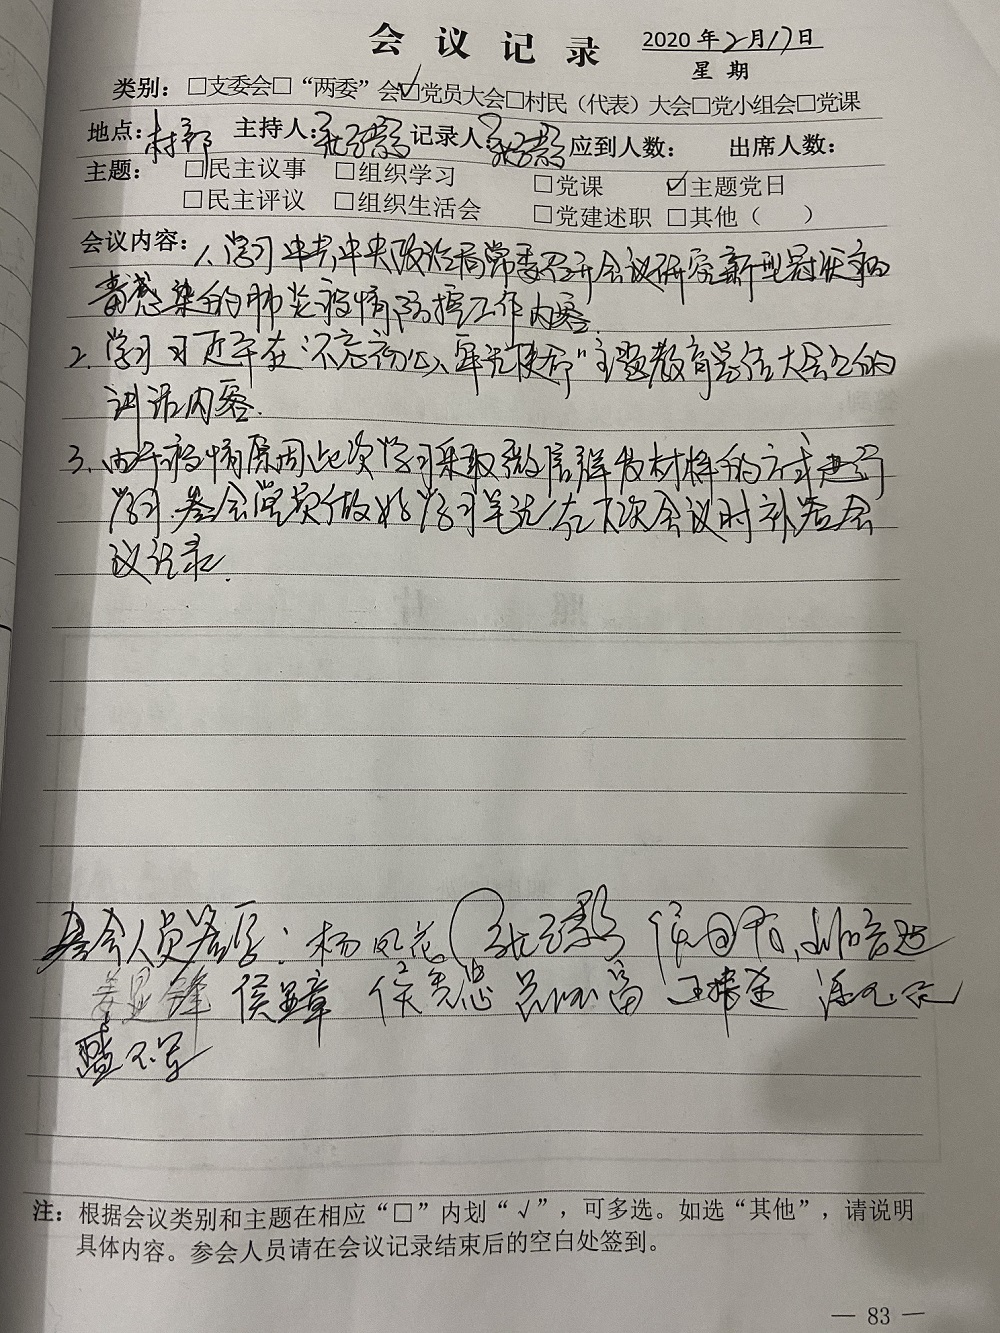 会议记录 2020年2月17日
星期
类别：□支委会□“两委”会☑党员大会□村民（代表）大会□党小组会□党课
地点：村部 主持人： 记录人： 应到人数： 出席人数：
主题： □民主议事 □组织学习 □党课 ☑主题党日
□民主评议 □组织生活会 □党建述职 □其他（ ）
会议内容：1、学习中共中央政治局常委召开会议研究新型冠状病
毒感染的肺炎疫情防控工作内容.
2、学习习近平在“不忘初心、牢记使命”主题教育总结大会上的
讲话内容.
3、由于疫情原因此次学习采取微信群发材料的方式进行
学习.参会党员做好学习笔记,在下次会议时补签会
议记录.
参会人员签字：杨凤花
侯显章
注：根据会议类别和主题在相应“□”内划“√”，可多选。如选“其他”，请说明
具体内容。参会人员请在会议记录结束后的空白处签到。
— 83 —